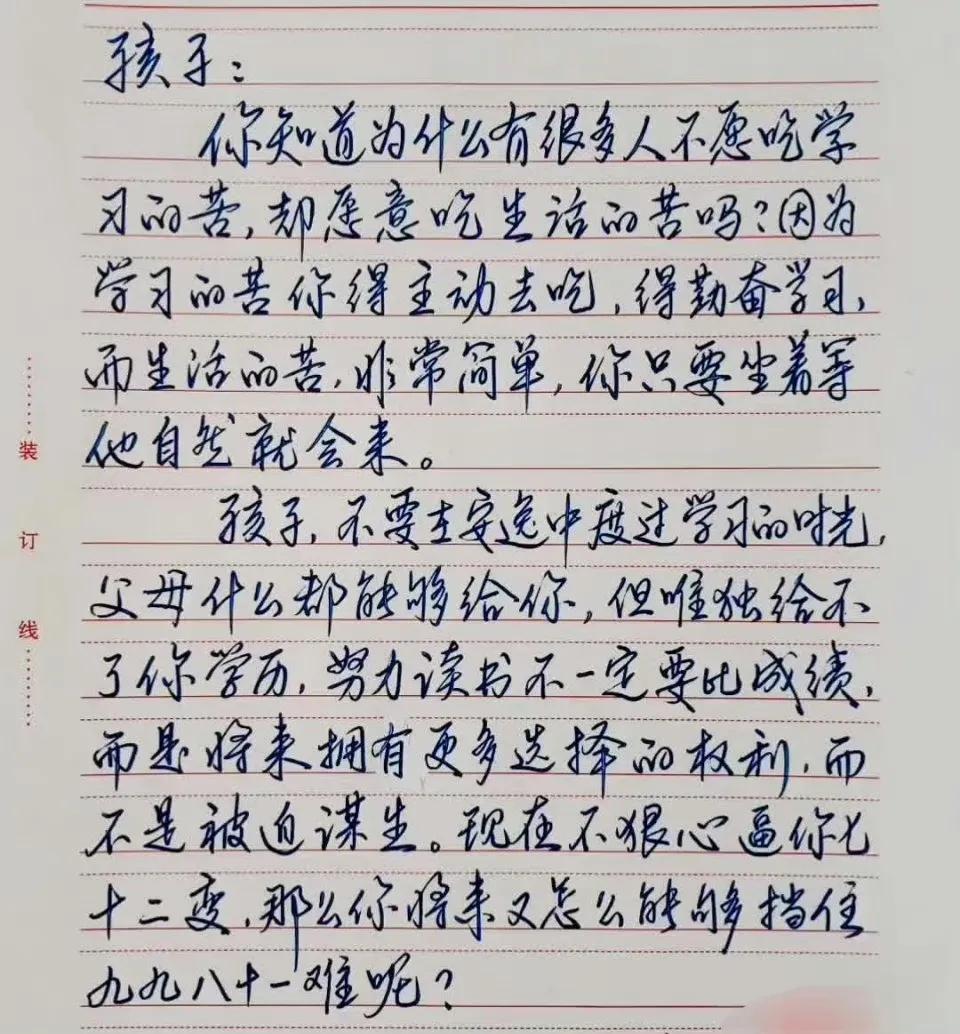 孩子:
你知道为什么有很多人不愿吃学
习的苦,却愿意吃生活的苦吗?因为
学习的苦你得主动去吃,得勤奋学习,
而生活的苦,非常简单,你只要坐着等
他自然就会来。
孩子,不要在安逸中度过学习的时光,
父母什么都能够给你,但唯独给不
了你学历,努力读书不一定要比成绩,
而是将来拥有更多选择的权利,而
不是被迫谋生。现在不狠心逼你七
十二变,那么你将来又怎么能够挡住
九九八十一难呢?
装
订
线